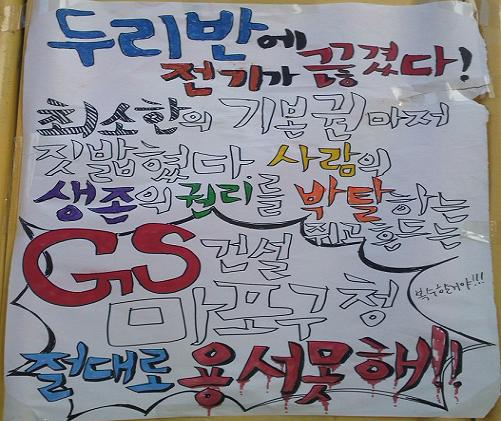 두리반에
전기가 끊겼다!
최소한의 기본권마저
짓밟혔다. 사람의
생존의 권리를 박탈하는
쥐고 흔드는
GS건설
마포구청
복수할거야!!!
절대로 용서못해!!